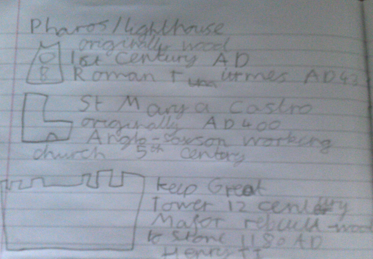 Pharos/lighthouse
originally wood
1st Century AD
Roman AD43
St Mary a Castro
originally AD400
Anglo-saxon working
church 5th century
keep Great
Tower 12 century
Major rebuild-wood
to stone 1180 AD
Henry II